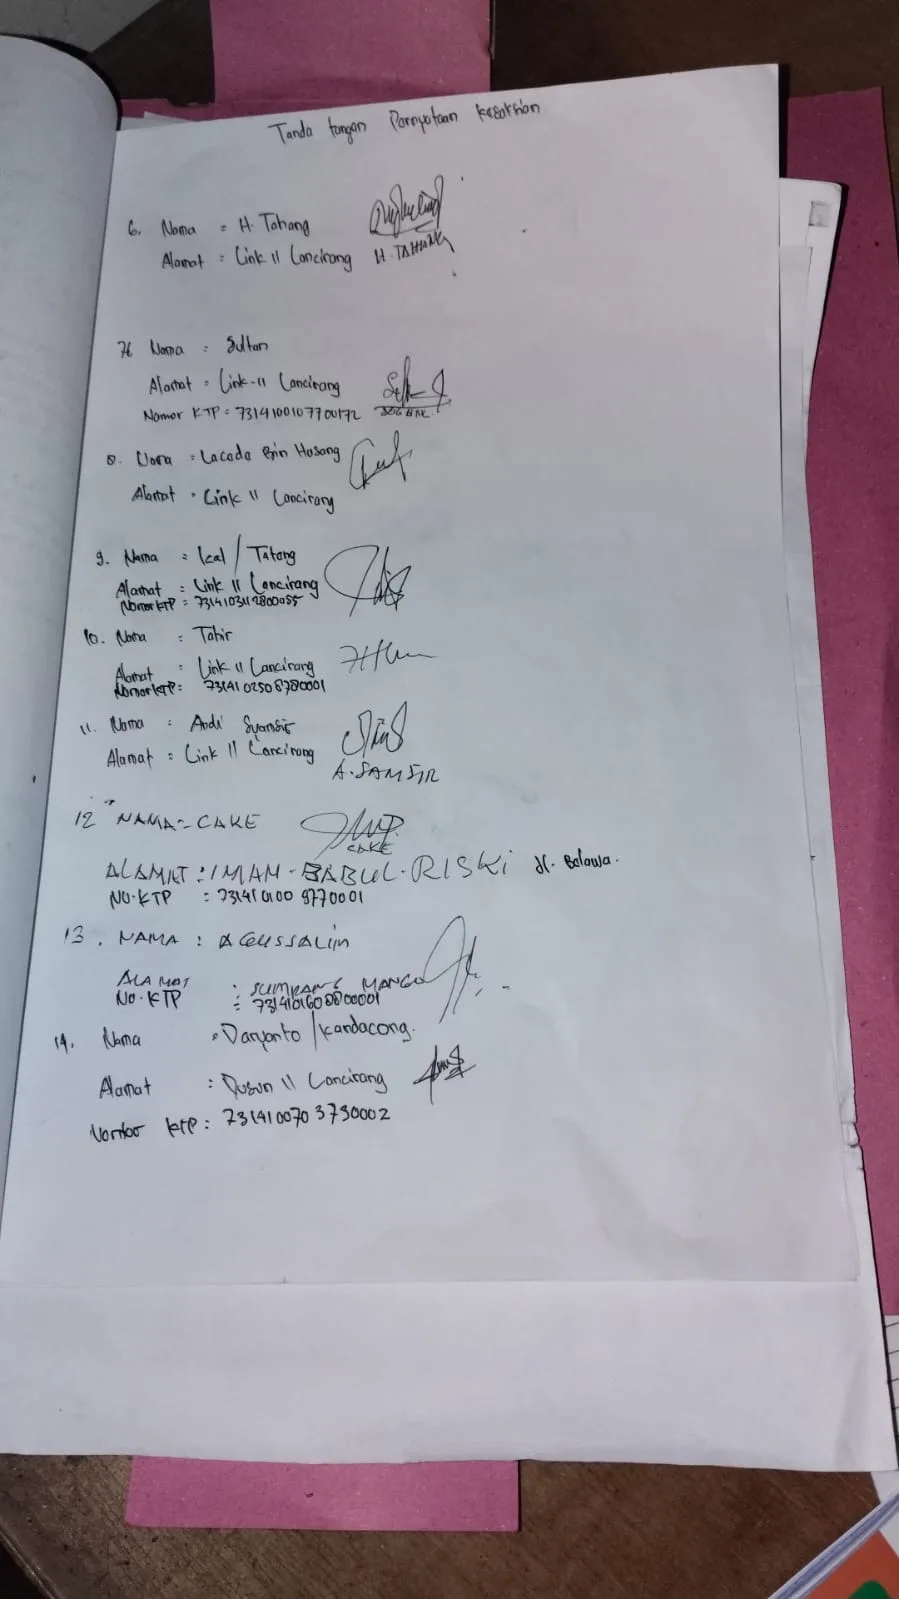 Tanda tangan Pernyataan Kesaksian
6. Nama = H. Tahang
Alamat = Link II Lancirang H. TAHANG
7 Nama : Sultan
Alamat = Link-II Lancirang
Nomor KTP = 7314100107700172
8. Nama : Lacada Bin Hasang
Alamat : Link II Lancirang
9. Nama : Ical / Tatang
Alamat : Link II Lancirang
Nomor KTP =
10. Nama : Tahir
Alamat : Link II Lancirang
Nomor KTP:
11. Nama : Andi Syamsir
Alamat : Link II Lancirang
A. SAMSIR
12 NAMA = CAKE
CAKE
ALAMAT : IMAM - BABUL. RISKI Jl. Belawa.
NO. KTP :
13. NAMA : AGUSSALIM
ALAMAT : SUMPANG MANGO
NO. KTP :
14. Nama : Daryanto / Kandacong.
Alamat : Dusun II Lancirang
Nomor KTP : 7314100703730002